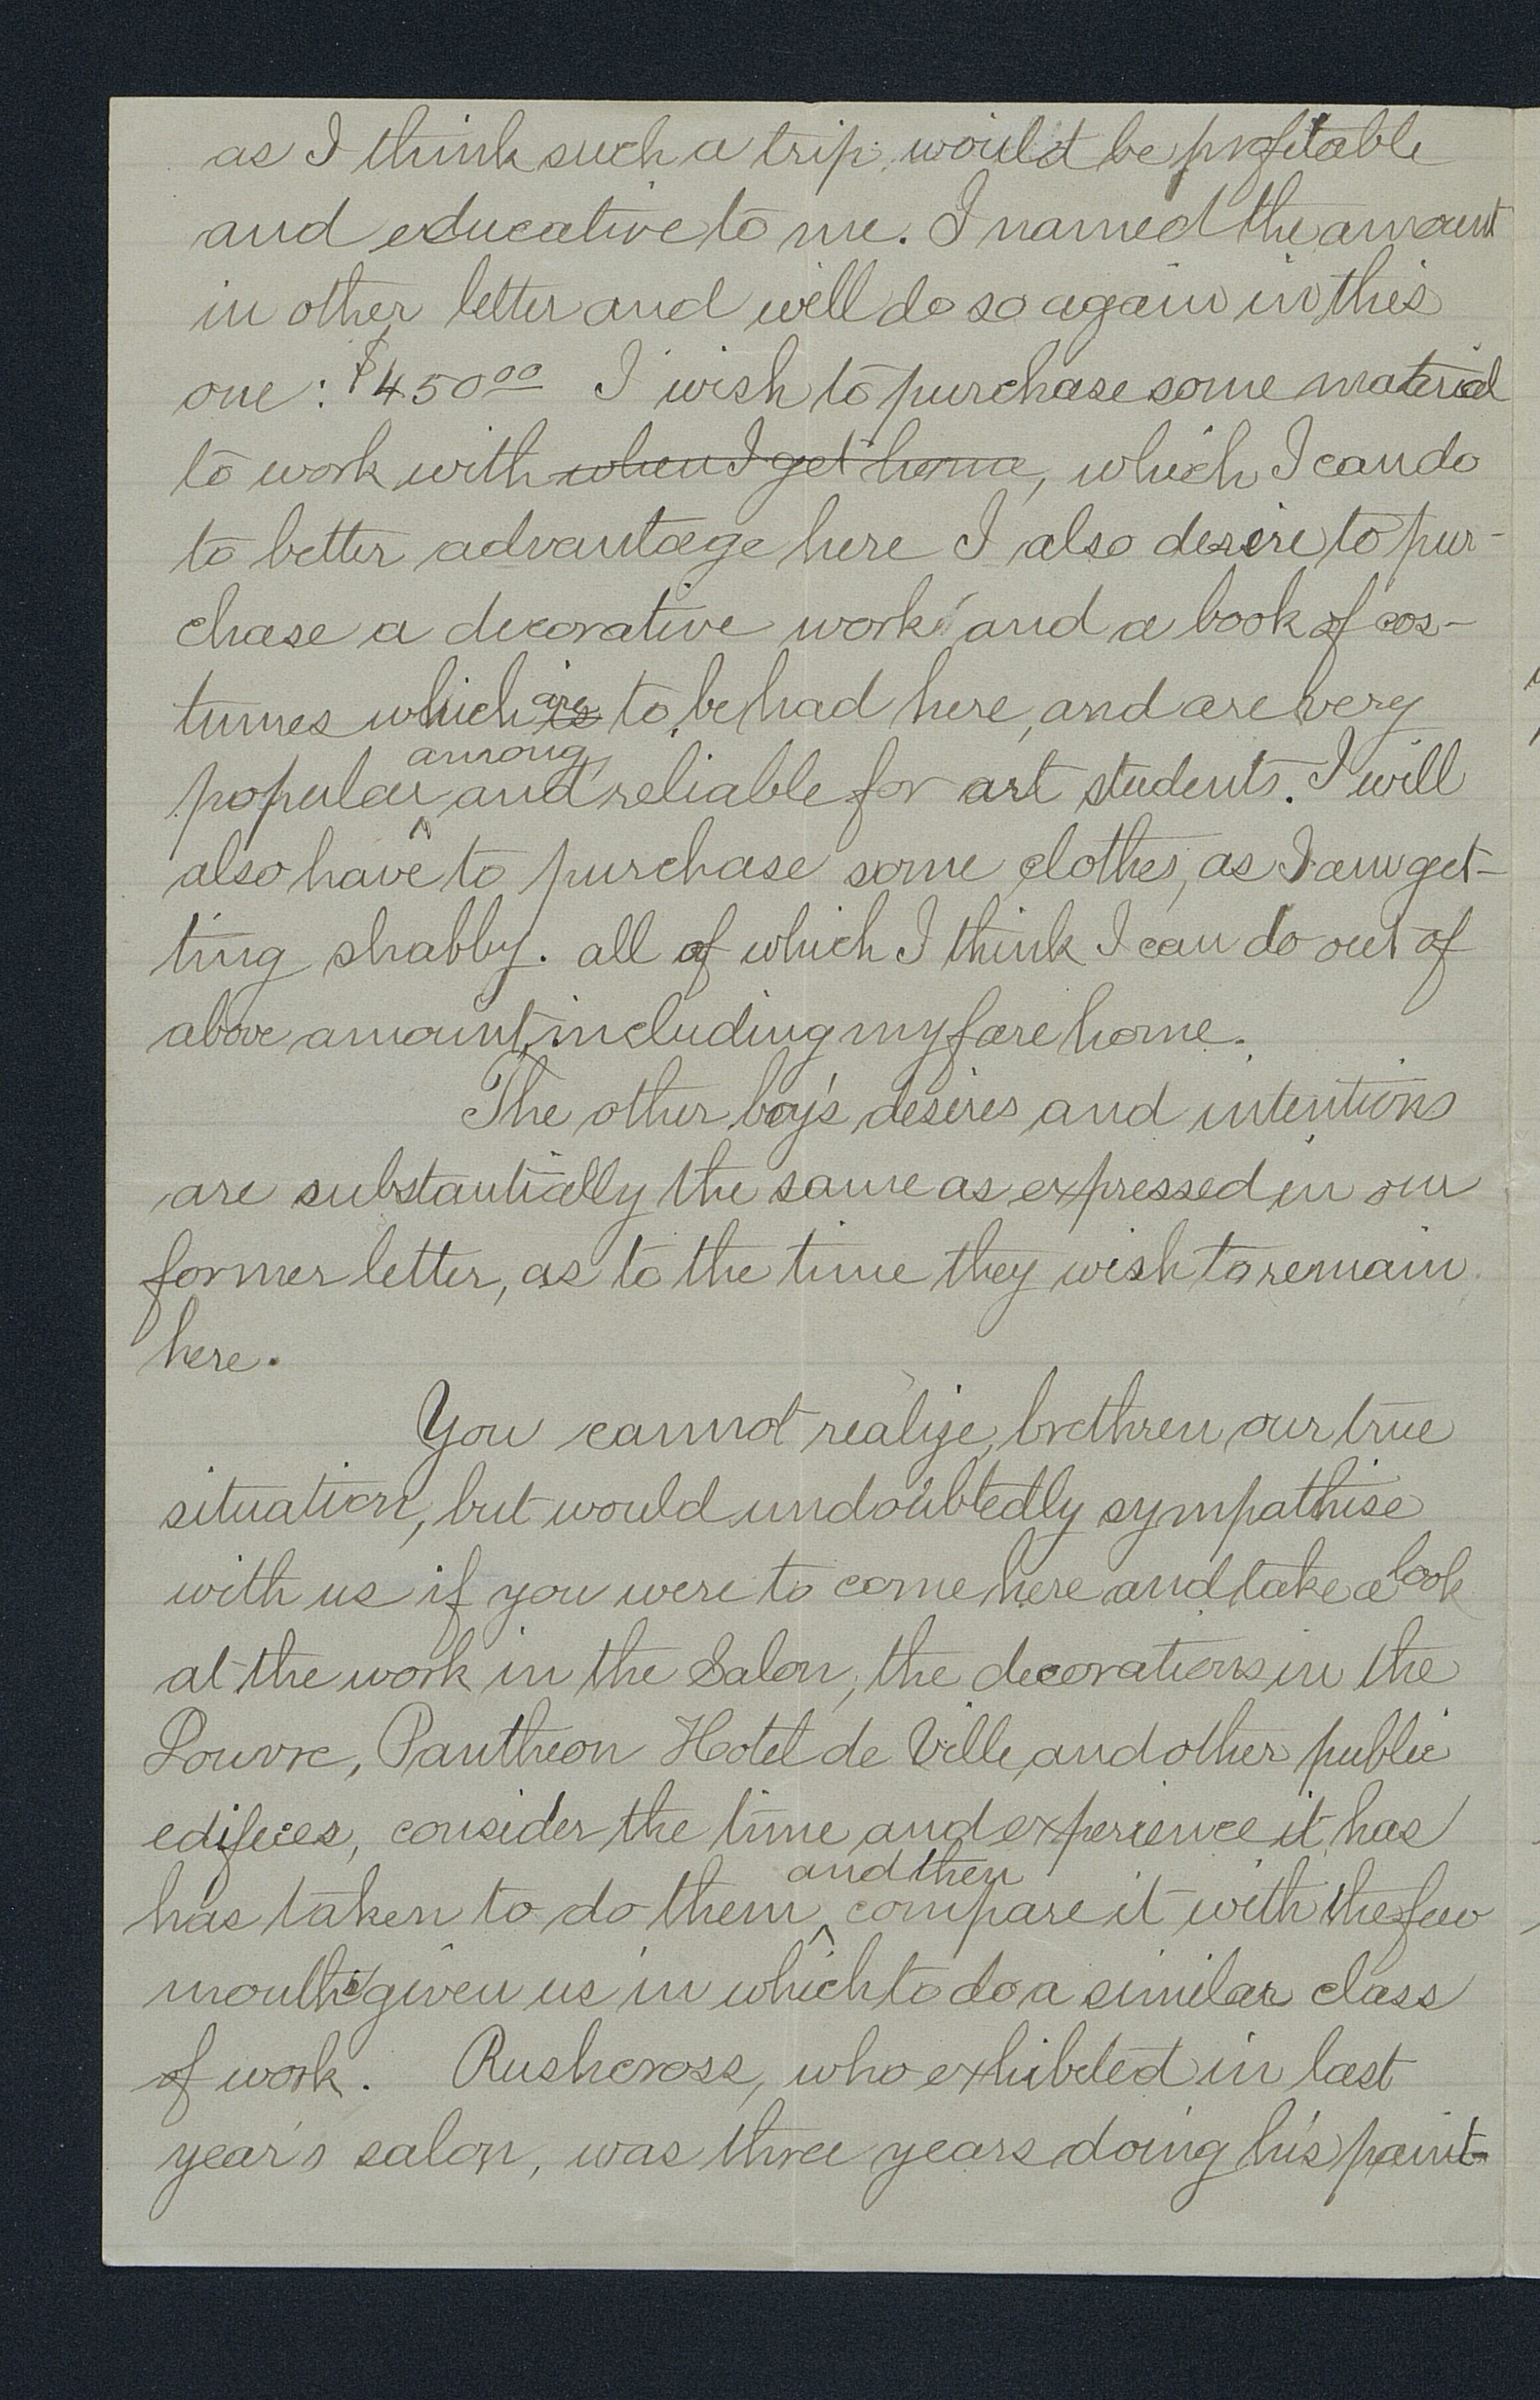 as I think such a trip would be profitable
and educative to me. I named the amount
in other letter and will do so again in this
one: $450.00 I wish to purchase some material
to work with when I get home, which I can do
to better advantage here I also desire to pur-
chase a decorative work and a book of cos-
tumes which is are to be had here, and are very
popular among and reliable for art students. I will
also have to purchase some clothes, as I am get-
ting shabby. all of which I think I can do out of
above amount, including my fare home.
The other boy's desires and intentions
are substantially the same as expressed in our
former letter, as to the time they wish to remain
here.
You cannot realize, brethren, our true
situation, but would undoubtedly sympathise
with us if you were to come here and take a look
at the work in the Salon, the decorations in the
Louvre, Pantheon Hotel de Ville, and other public
edifices, consider the time and experience it has
has taken to do them and then compare it with the few
months given us in which to do a similar class
of work. Rushcross, who exhibited in last
year's salon, was three years doing his paint-